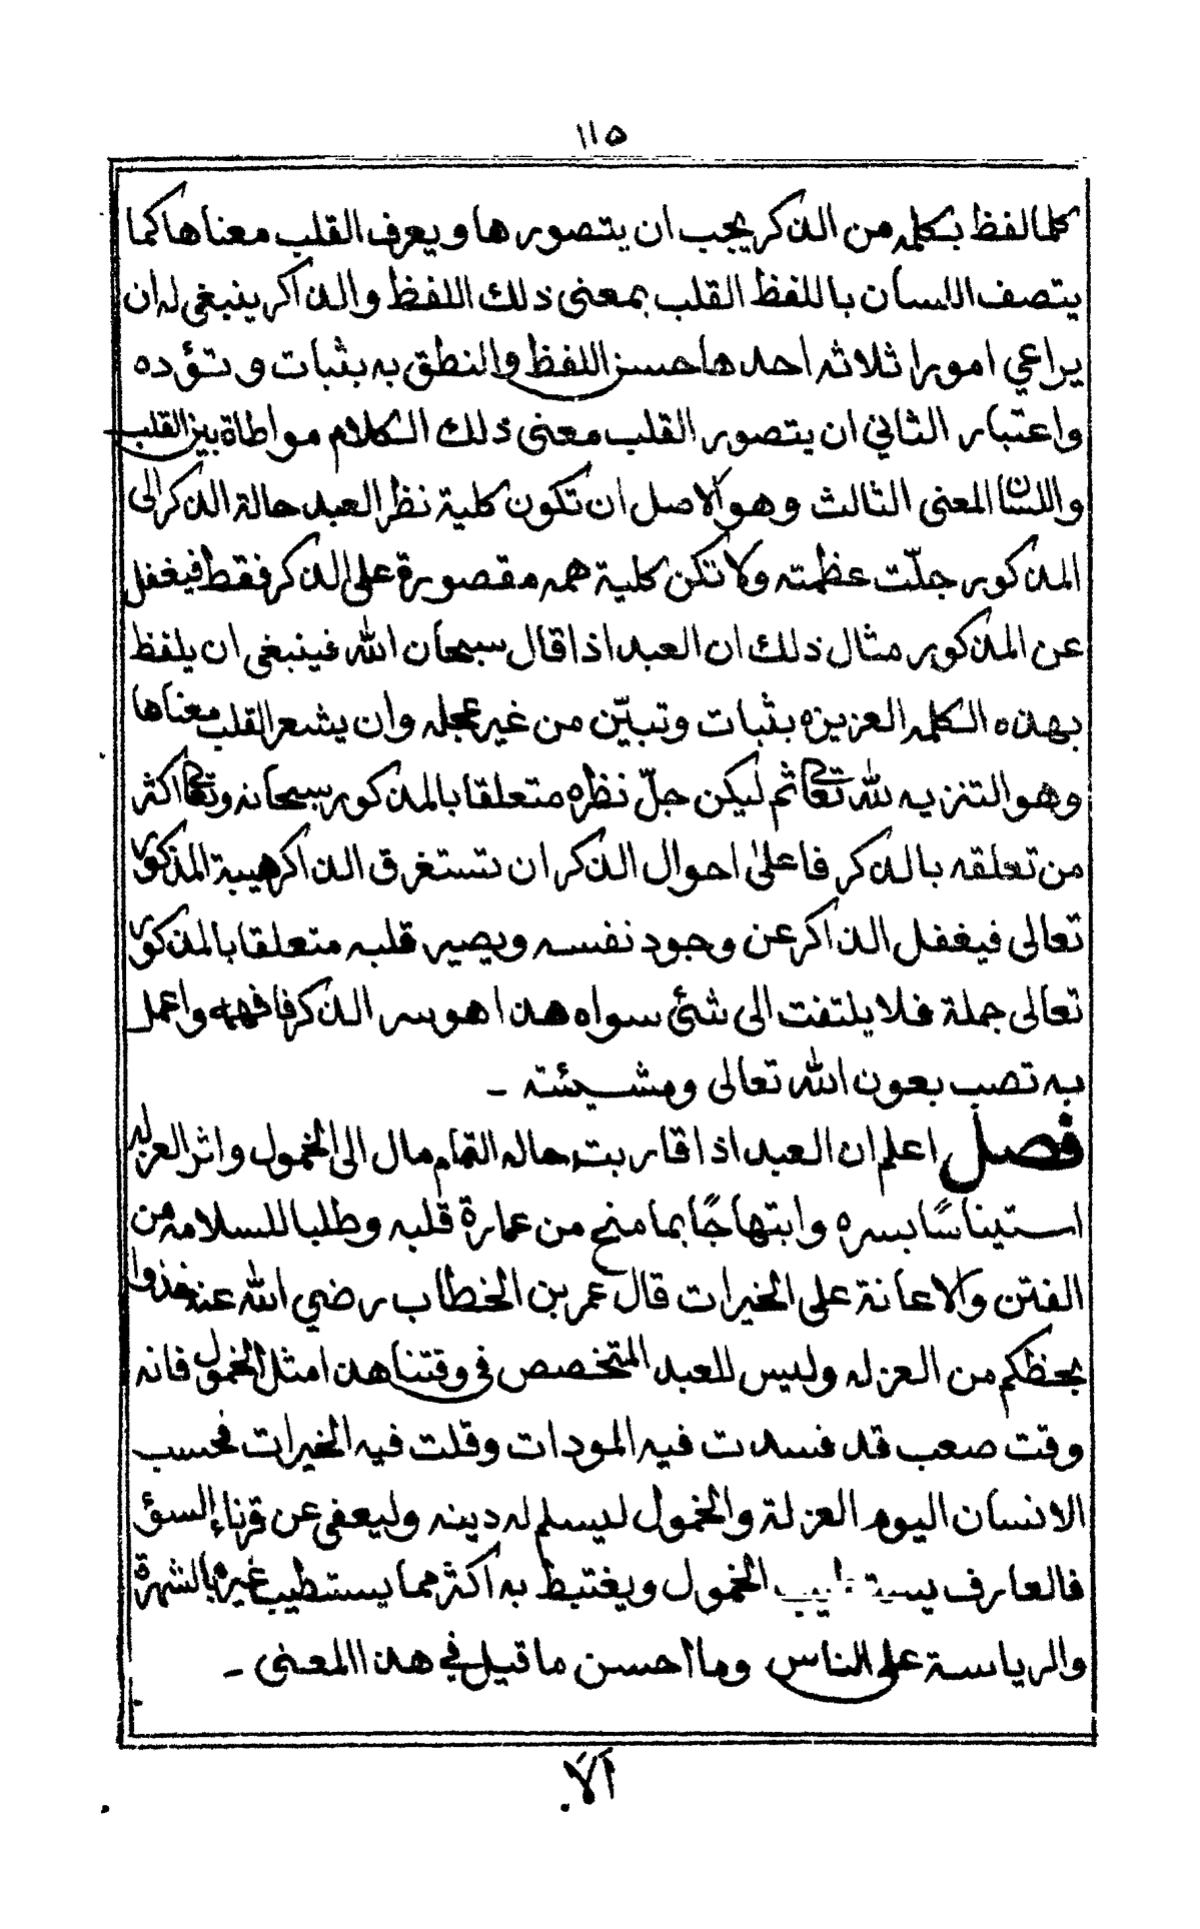 ١١٥
كلما لفظ بكلمه من الذكر يجب ان يتصورها ويعرف القلب معناها كما
يتصف اللسان باللفظ القلب بمعنى ذلك اللفظ والذاكر ينبغي له ان
يراعي امورا ثلاثه احدها حسن اللفظ والنطق به بثبات وتؤده
واعتبار الثاني ان يتصور القلب معنى ذلك الكلام مواطاة بين القلب
واللسان المعنى الثالث وهو الاصل ان تكون كلية نظر العبد حالة الذكر الى
المذكور جلّت عظمته ولا تكن كلية همه مقصورة على الذكر فقط فيغفل
عن المذكور مثال ذلك ان العبد اذا قال سبحان الله فينبغي ان يلفظ
بهذه الكلمه العزيزه بثبات وتبيّن من غير عجله وان يشعر القلب معناها
وهو التنزيه لله تعالى ثم ليكن جلّ نظره متعلقا بالمذكور سبحانه وتعالى اكثر
من تعلقه بالذكر فاعلى احوال الذكر ان تستغرق الذاكر هيبة المذكور
تعالى فيغفل الذاكر عن وجود نفسه ويصير قلبه متعلقا بالمذكور
تعالى جملة فلا يلتفت الى شئ سواه هذا هو سر الذكر فافهمه واعمل
به تصب بعون الله تعالى ومشيئته -
فصل اعلم ان العبد اذا قاربت حاله التمام مال الى الخمول واثر العزله
استيناسًا بسره وابتهاجًا بما منح من عمارة قلبه وطلبا للسلامه من
الفتن والاعانة على الخيرات قال عمر بن الخطاب رضي الله عنه خذوا
بحظكم من العزله وليس للعبد المتخصص في وقتنا هذا مثل الخمول فانه
وقت صعب قد فسدت فيه المودات وقلت فيه الخيرات فحسب
الانسان اليوم العزلة والخمول ليسلم له دينه وليعفى عن قرناء السؤ
فالعارف يستطيب الخمول ويغتبط به اكثر مما يستطيب غيره بالشهرة
والرياسة على الناس وما احسن ما قيل في هذا المعنى -
الا